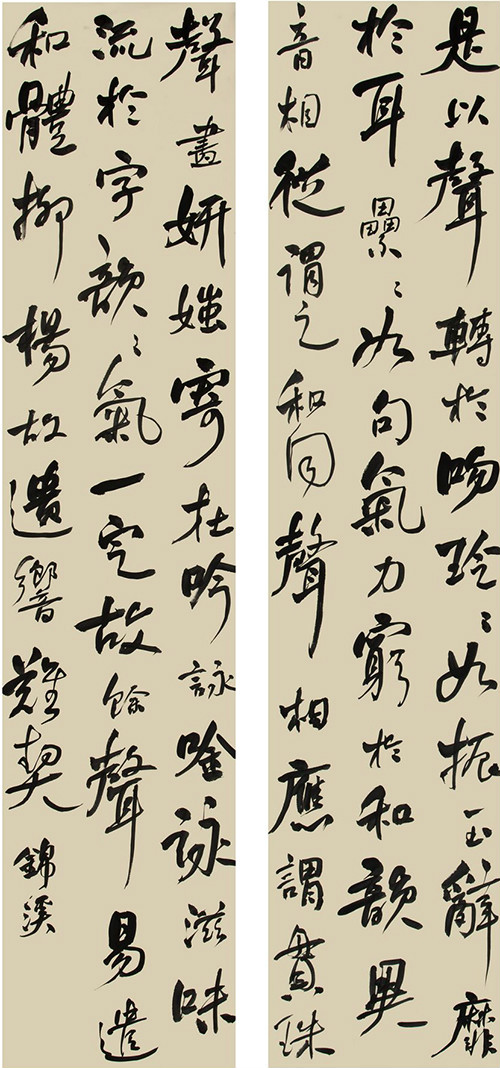 是以聲轉於吻玲々如振玉辭靡
於耳纍々如句氣力窮於和韻異
音相從謂之和同聲相應謂貫珠
聲畫妍媸寄在吟詠唫詠滋味
流於字韻々氣一定故餘聲易遣
和體抑揚故遺響難契 錦溪